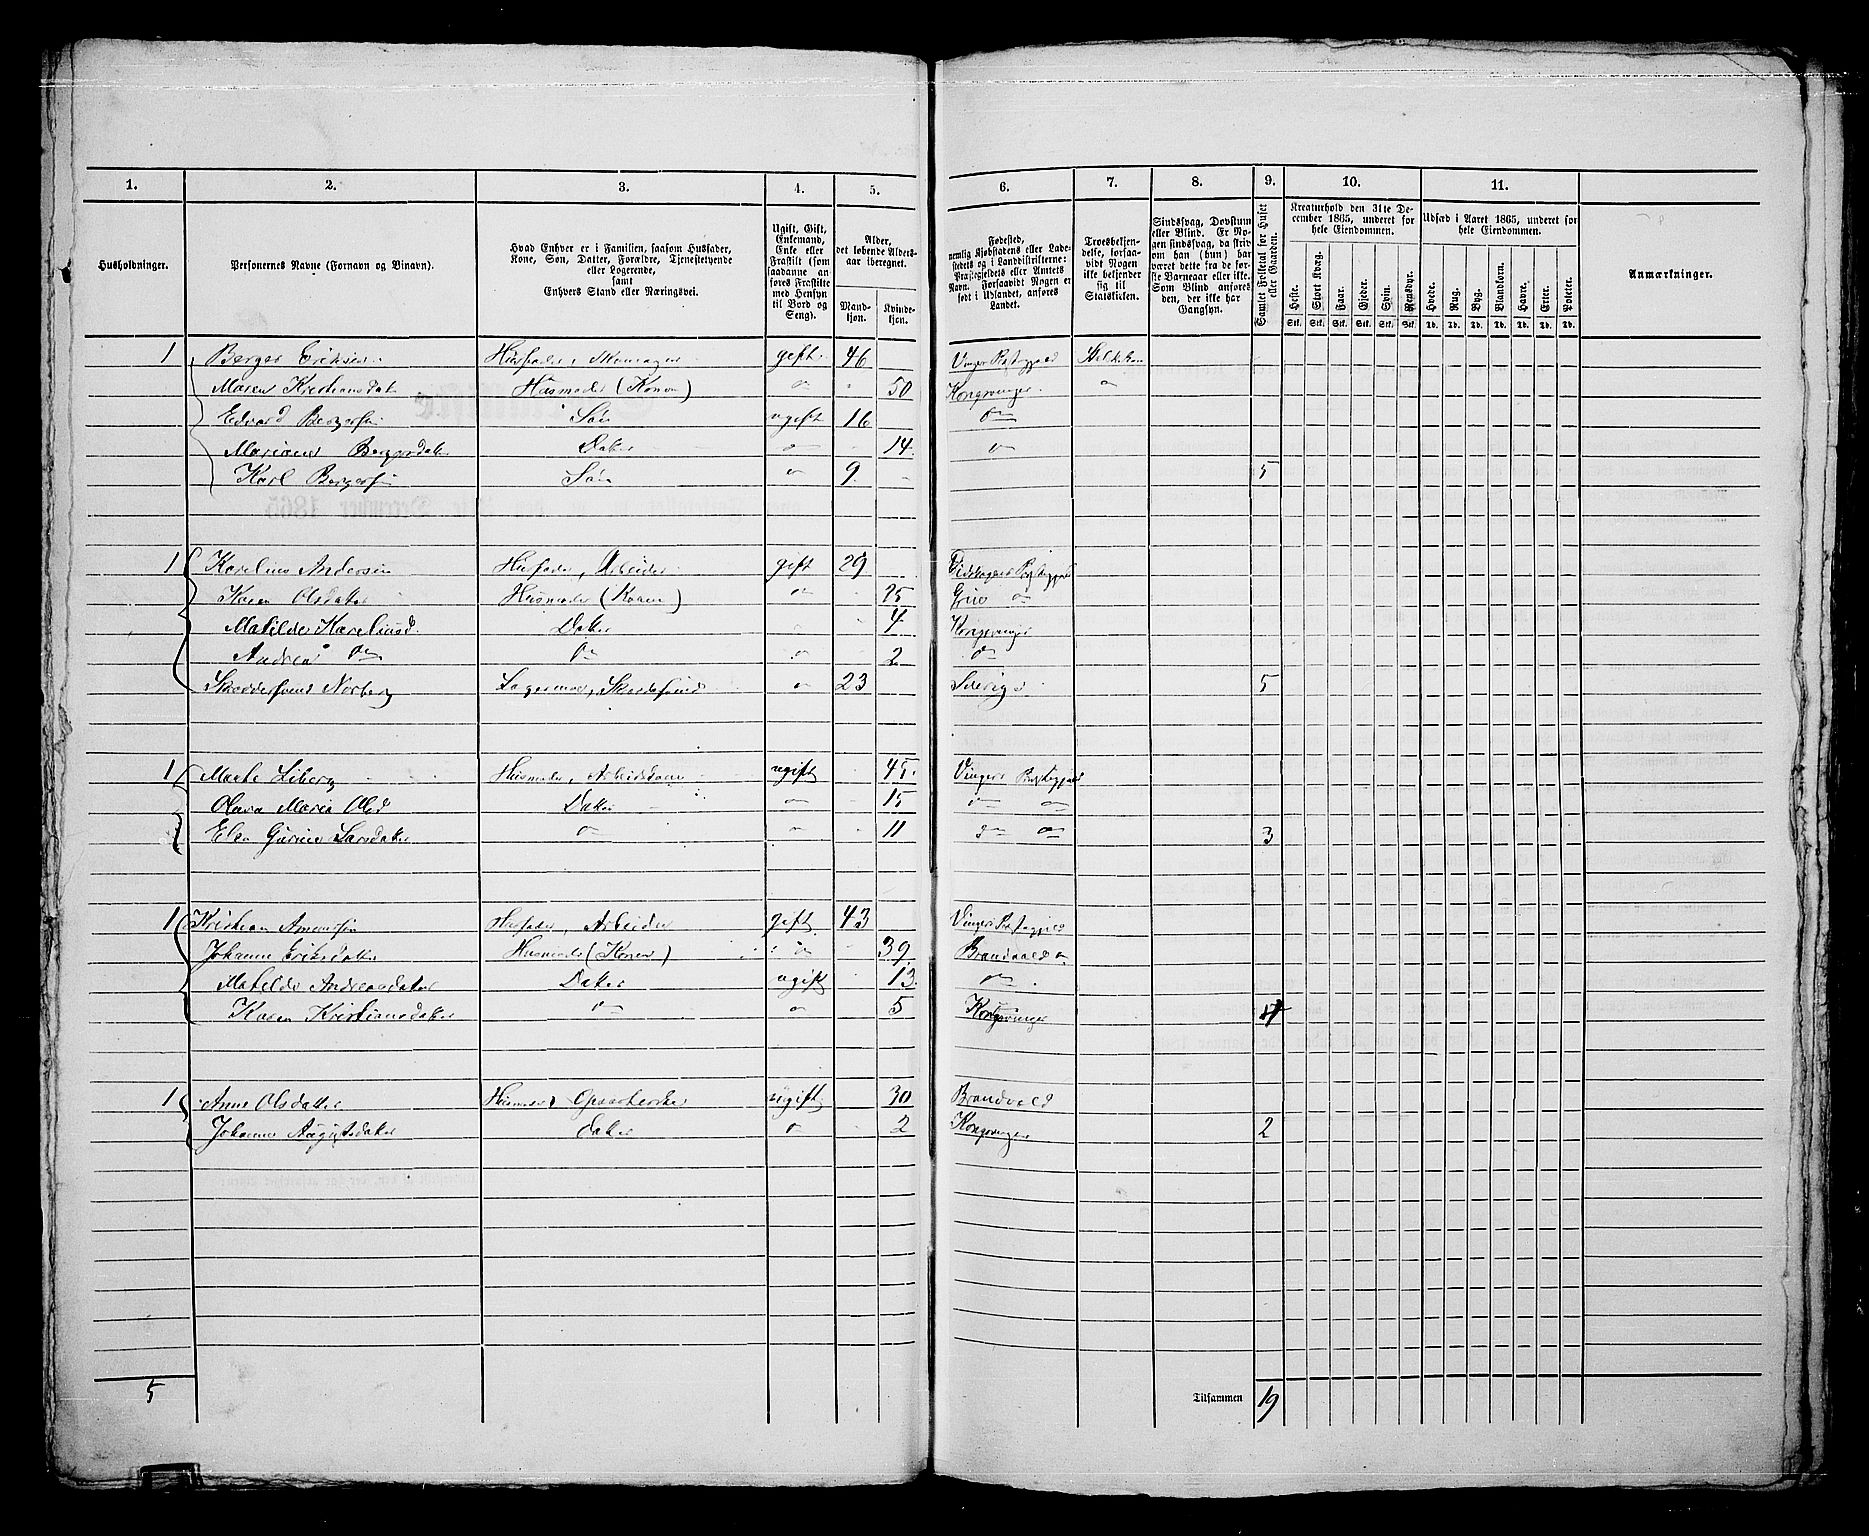 1. 2. 3. 4. 5. 6. 7. 8. 9. 10. 11.
Husholdninger.
Personernes Navne (Fornavn og Vinavn).
Hvad Enhver er i Familien, saasom Husfader,
Kone, Søn, Datter, Forældre, Tjenestetyende
eller Logerende,
samt
Enhvers Stand eller Næringsvei.
Ugift, Gift,
Enkemand,
Enke eller
Fraskilt (som
saadanne an-
føres Fraskilte
med Hensyn
til Bord og
Seng).
Alder,
det løbende Alders-
aar iberegnet.
Mand-
kjøn.
Kvinde-
kjøn.
Fødested,
nemlig Kjøbstadens eller Lade-
stedets og i Landdistrikterne:
Præstegjeldets eller Amtets
Navn. Forsaavidt Nogen er
født i Udlandet, anføres
Landet.
Troesbekjen-
delse, forsaa-
vidt Nogen
ikke bekjender
sig til
Statskirken.
Sindssvag, Døvstum
eller Blind. Er No-
gen sindssvag, da skriv
om han (hun) har
været dette fra de før-
ste Barneaar eller ikke.
Som Blind anføres
den, der ikke har
Gangsyn.
Samlet Folketal for Huset
eller Gaarden.
Kreaturhold den 31te De-
cember 1865, underet for
hele Eiendommen.
Heste. Stort Kvæg. Faar. Gjeder. Svin. Rensdyr.
Stk. Stk. Stk. Stk. Stk. Stk.
Udsæd i Aaret 1865, underet for
hele Eiendommen.
Hvede. Rug. Byg. Blandkorn. Havre. Erter. Poteter.
Td. Td. Td. Td. Td. Td. Td.
Anmærkninger.
1 Berger Eriksen Husfader, Skomager gift 46 Vinger Præstegjeld
Maren Kristiansdat Husmoder (Konen) " 50 Kongsvinger
Edvard Bergersen Søn ugift 16 do
Mariane Bergersdatter Datter " 14 "
Karl Bergersen Søn " 9 5
1 Karelius Andersen Husfader, Arbeider gift 29 Eidskogens Præstegjeld
Karen Olsdatter Husmoder (Konen) " 25 Grue "
Matilde Kareliusd. Datter 4 Kongsvinger
Andrea do do " 2 do
Skræddersvend Norberg Logerende, Skrædersvend " 23 Sverige 5
1 Marte Liberg Husmoder, ugift 45 Vinger Præstegjeld
Olava Maria Olsd Datter " 15 " "
Elen Gurine Larsdatter do " 11 do do 3
1 Kristian Husfader, Arbeider gift 43 Vinger Præstegjeld
Johanne Eriksdatter Husmoder (Konen) " 39 Brandval do
Matilde Andreasdatter Datter ugift 13 do
Karen Kristiansdatter do " 5 Kongsvinger 4
1 Anne Olsdatter Husmoder, Opvarterske ugift 30 Brandvold
Johanne Augustsdatter Datter " 2 Kongsvinger 2
5 Tilsammen 19